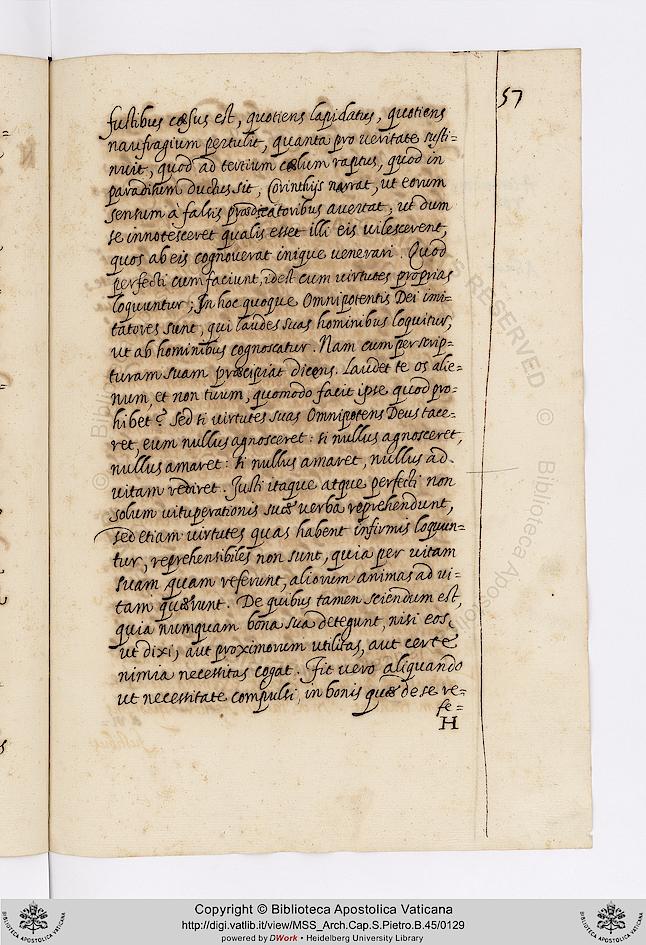 57
fustibus cæsus est, quotiens lapidatus, quotiens
naufragium pertulit, quanta pro veritate susti=
nuit, quod ad tertium cælum raptus, quod in
paradisum ductus sit, Corinthijs narrat, ut eorum
sensum à falsis prædicatoribus avertat, ut dum
se innotesceret qualis esset illi eis vilescerent,
quos ab eis cognoverat inique venerari. Quod
perfecti cum faciunt, idest cum virtutes proprias
loquuntur; In hoc quoque Omnipotentis Dei imi=
tatores sunt, qui laudes suas hominibus loquitur,
ut ab hominibus cognoscatur. Nam cum per scrip=
turam suam præcipiat dicens. Laudet te os alie=
num, et non tuum, quomodo facit ipse quod pro=
hibet? Sed si virtutes suas Omnipotens Deus tace=
ret, eum nullus agnosceret: si nullus agnosceret,
nullus amaret: si nullus amaret, nullus ad
vitam rediret. Justi itaque atque perfecti non
solum vituperationis suæ verba reprehendunt,
sed etiam virtutes quas habent infirmis loquun=
tur, reprehensibiles non sunt, quia per vitam
suam quam referunt, aliorum animas ad vi=
tam quærunt. De quibus tamen sciendum est,
quia numquam bona sua detegunt, nisi eos,
ut dixi, aut proximorum utilitas, aut certe
nimia necessitas cogat. Fit vero aliquando
ut necessitate compulsi, in bonis quæ de se re=
fe=
H
Copyright © Biblioteca Apostolica Vaticana
http://digi.vatlib.it/view/MSS_Arch.Cap.S.Pietro.B.45/0129
powered by DWork • Heidelberg University Library